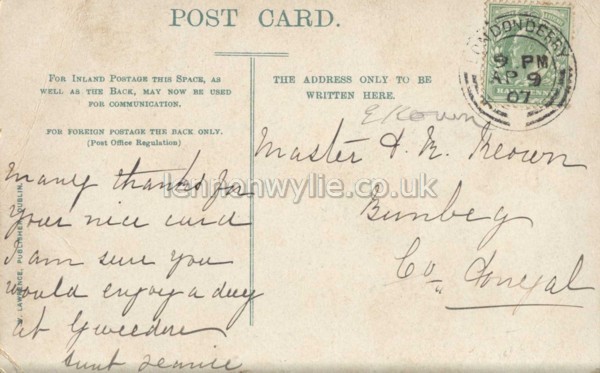 POST CARD.
FOR INLAND POSTAGE THIS SPACE, AS
WELL AS THE BACK, MAY NOW BE USED
FOR COMMUNICATION.
FOR FOREIGN POSTAGE THE BACK ONLY.
(Post Office Regulation)
THE ADDRESS ONLY TO BE
WRITTEN HERE.
LONDONDERRY
9 PM
AP 9
07
E Keown
Master & M. Keown
Bunbeg
Co. Donegal
Many thanks for
your nice card
I am sure you
would enjoy a day
at Gweedore
Aunt
W. LAWRENCE, PUBLISHER, DUBLIN.
lennonwylie.co.uk